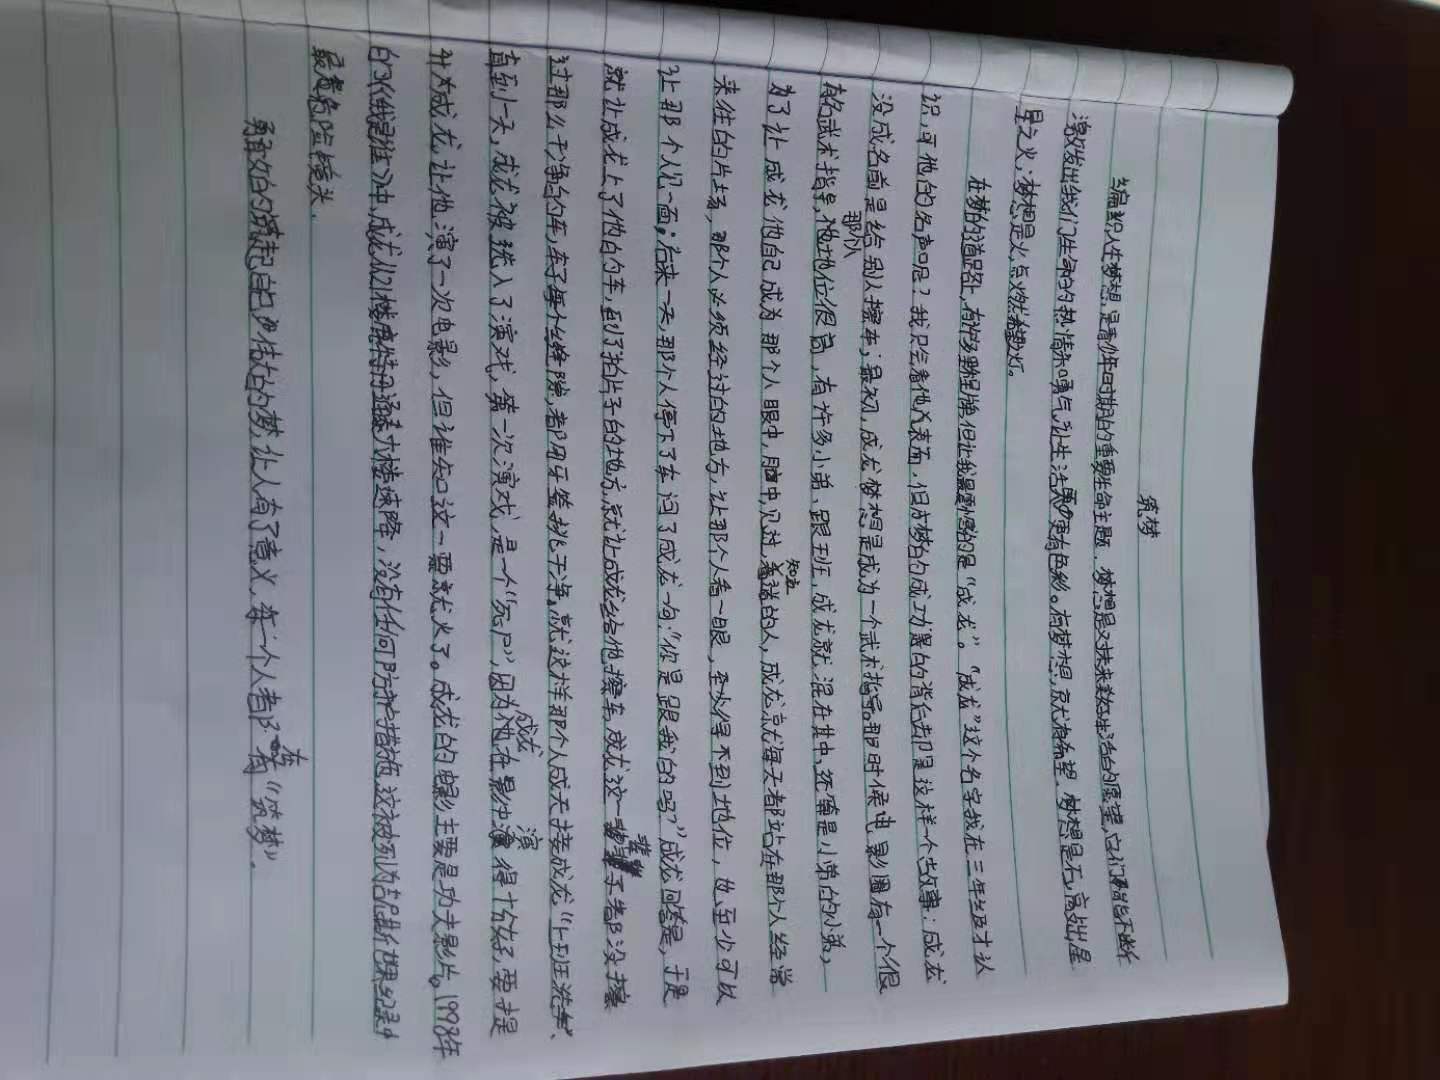 筑梦
编织人生梦想是青少年时期的重要生命主题，梦想是对未来美好生活的愿望，它们能不断
激发出我们生命的热情和勇气，让生活更有色彩。有梦想，就有希望，梦想是石，敲出星
星之火；梦想是火，点燃希望灯。
在梦的道路上，有许多绊脚，但让我最影的是“成龙”。“成龙”这个名字我在三年级才认
识，可他的名声呢？我只会看他在表面，但为梦的成功着的背后却是这样一个故事：成龙
没成名前是给别人擦车，最初，成龙梦想是成为一个武术指导。那时候电影圈有一个很
有名武术指导，那个人地位很高，有许多小弟、跟班，成龙就混在其中，统算是小弟的小弟，
为了让成龙他自己成为那个人眼中，脑中，见过，知道的人，成龙就每天都站在那个人经常
来往的片场，那个人必须经过的地方，让那个人看一眼，至少得不到地位，也至少可以
让那个人见一面。后来一天，那个人停下了车问了成龙一句：“你是跟我的吗？”成龙回答是，于是
就让成龙上了他的车，到了拍片子的地方，就让成龙给他擦车，成龙这一辈子都没擦
过那么干净的车，车子每个缝隙，都用牙签挑干净。就这样那个人成天接成龙“上班洗车”、
直到一天，成龙被选入了演戏，第一次演戏，是一个“死尸”，因为成龙在影中演得十分好，要提
升成龙，让他演了一次电影，但谁知这一要就火了。成龙的电影主要是功夫影片。1998年
的《我是谁》中，成龙从21楼鹿特丹大楼速降，没有任何防护措施，这被列为吉尼斯世界纪录中
最危险镜头。
勇敢的筑起自己伟大的梦，让人有了意义，每一个人都在“筑梦”。